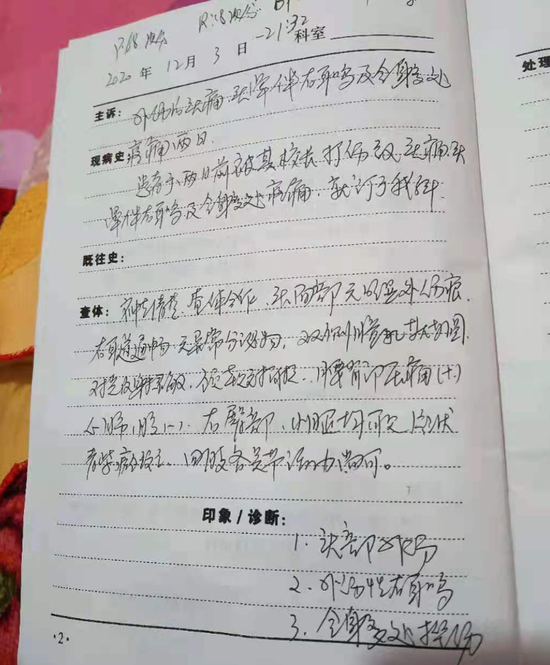 2020年12月3日 21:32 科室
处理
主诉: 外伤后头痛、头晕伴右耳鸣及全身多处
现病史 疼痛两日
患者于两日前被其校长打伤致头痛、头
晕伴右耳鸣及全身多处疼痛,就诊于我科.
既往史:
查体: 神志清楚,查体合作,头面部无明显外伤痕,
右耳道通畅,无异常分泌物,双侧瞳孔等大等圆
对光反射灵敏,颈软无抵抗,腰背部压痛(+)
心肺腹(-),右臀部、小腿均可见片状
青紫瘀斑,四肢各关节活动尚可。
印象/诊断:
1. 头部外伤
2. 外伤性右耳鸣
3. 全身多处挫伤
·2·